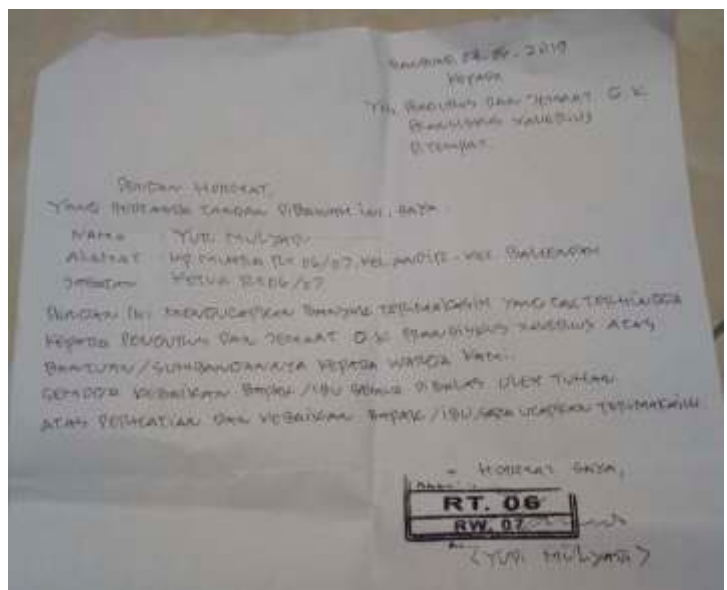 BANDUNG, 2019
KEPADA
YTH, PENGURUS DAN JEMAAT G.K
FRANSISKUS XAVERIUS
DITEMPAT.
DENGAN HORMAT,
YANG BERTANDA TANGAN DIBAWAH INI, SAYA
NAMA : YUDI MULYADI
ALAMAT : RT 06/07, KEL ANDIR - KEC BALEENDAH
JABATAN : KETUA RT 06/07
DENGAN INI MENGUCAPKAN BANYAK TERIMAKASIH YANG TAK TERHINGGA
KEPADA PENGURUS DAN JEMAAT G.K FRANSISKUS XAVERIUS ATAS
BANTUAN/SUMBANGANNYA KEPADA WARGA KAMI.
SEMOGA KEBAIKAN BAPAK/IBU DIBALAS OLEH TUHAN.
ATAS PERHATIAN DAN KEBAIKAN BAPAK/IBU, SAYA UCAPKAN TERIMAKASIH
HORMAT SAYA,
RT. 06
RW. 07
(YUDI MULYADI)